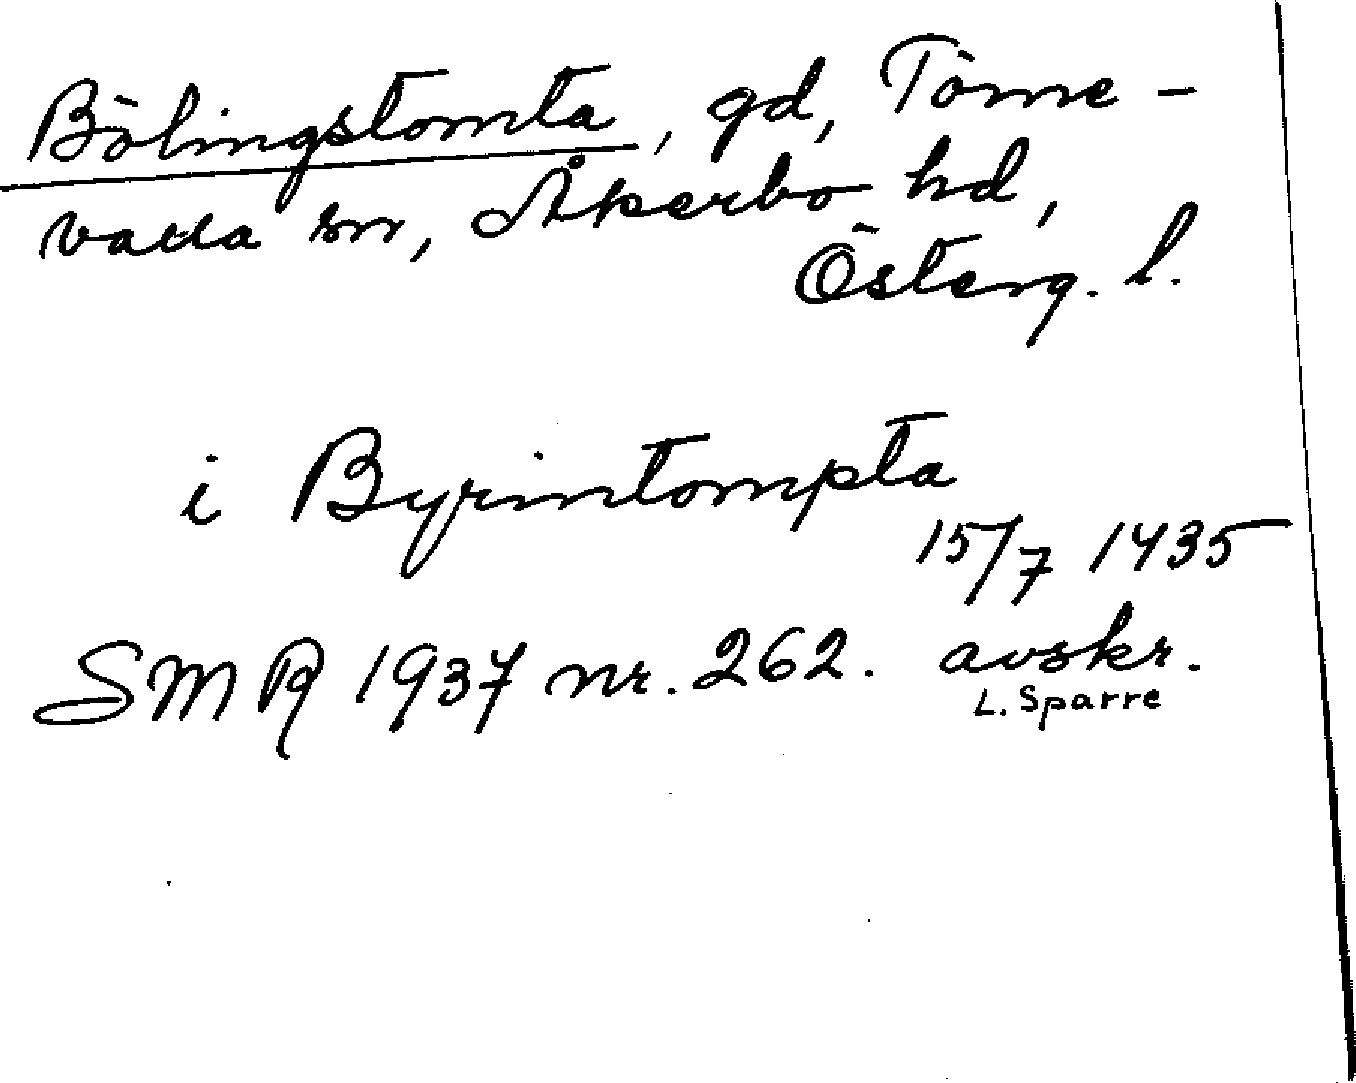 Bölingstomta, gd, Törne-
valla sn, Åkerbo hd,
Österg. l.
i Byrintompta
15/7 1435
SMR 1937 nr. 262. avskr.
L. Sparre